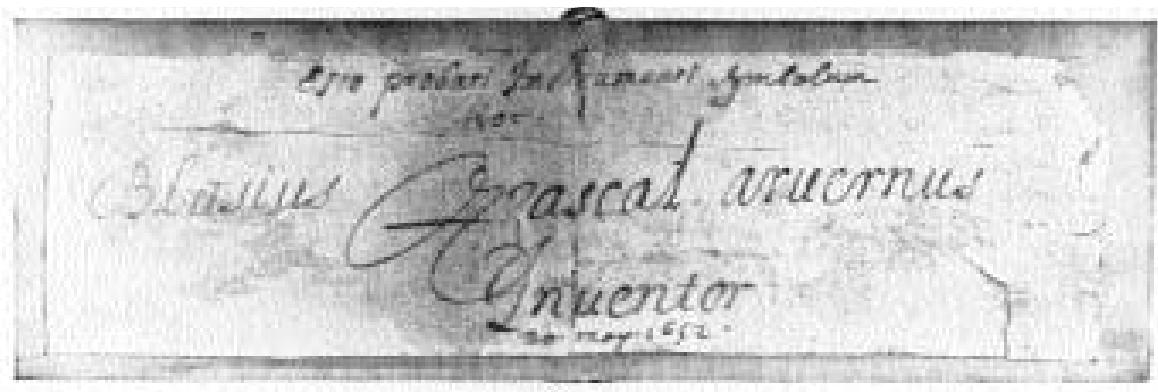 Esto probati Instrumenti symbolum
hoc.
Blasius Pascal. aruernus
Inuentor
20 may 1652.